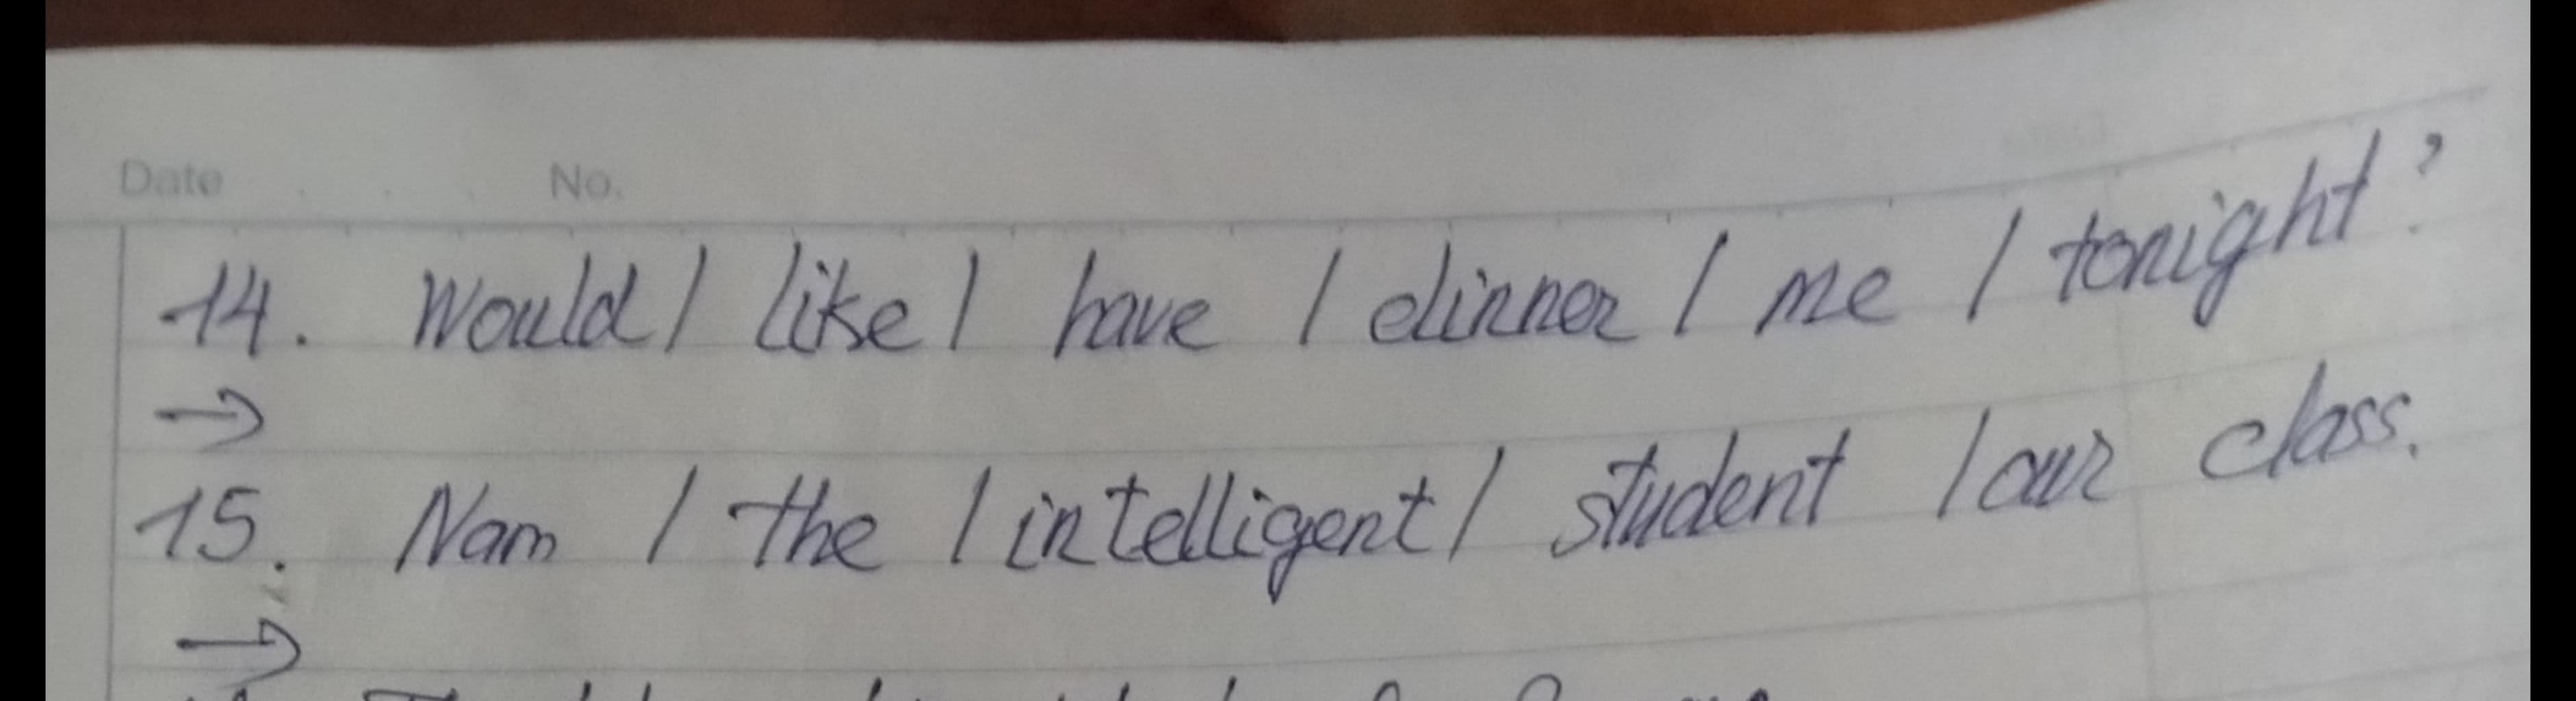 Date No.
14. Would / like / have / dinner / me / tonight?
→
15. Nam / the / intelligent / student / our class.
→